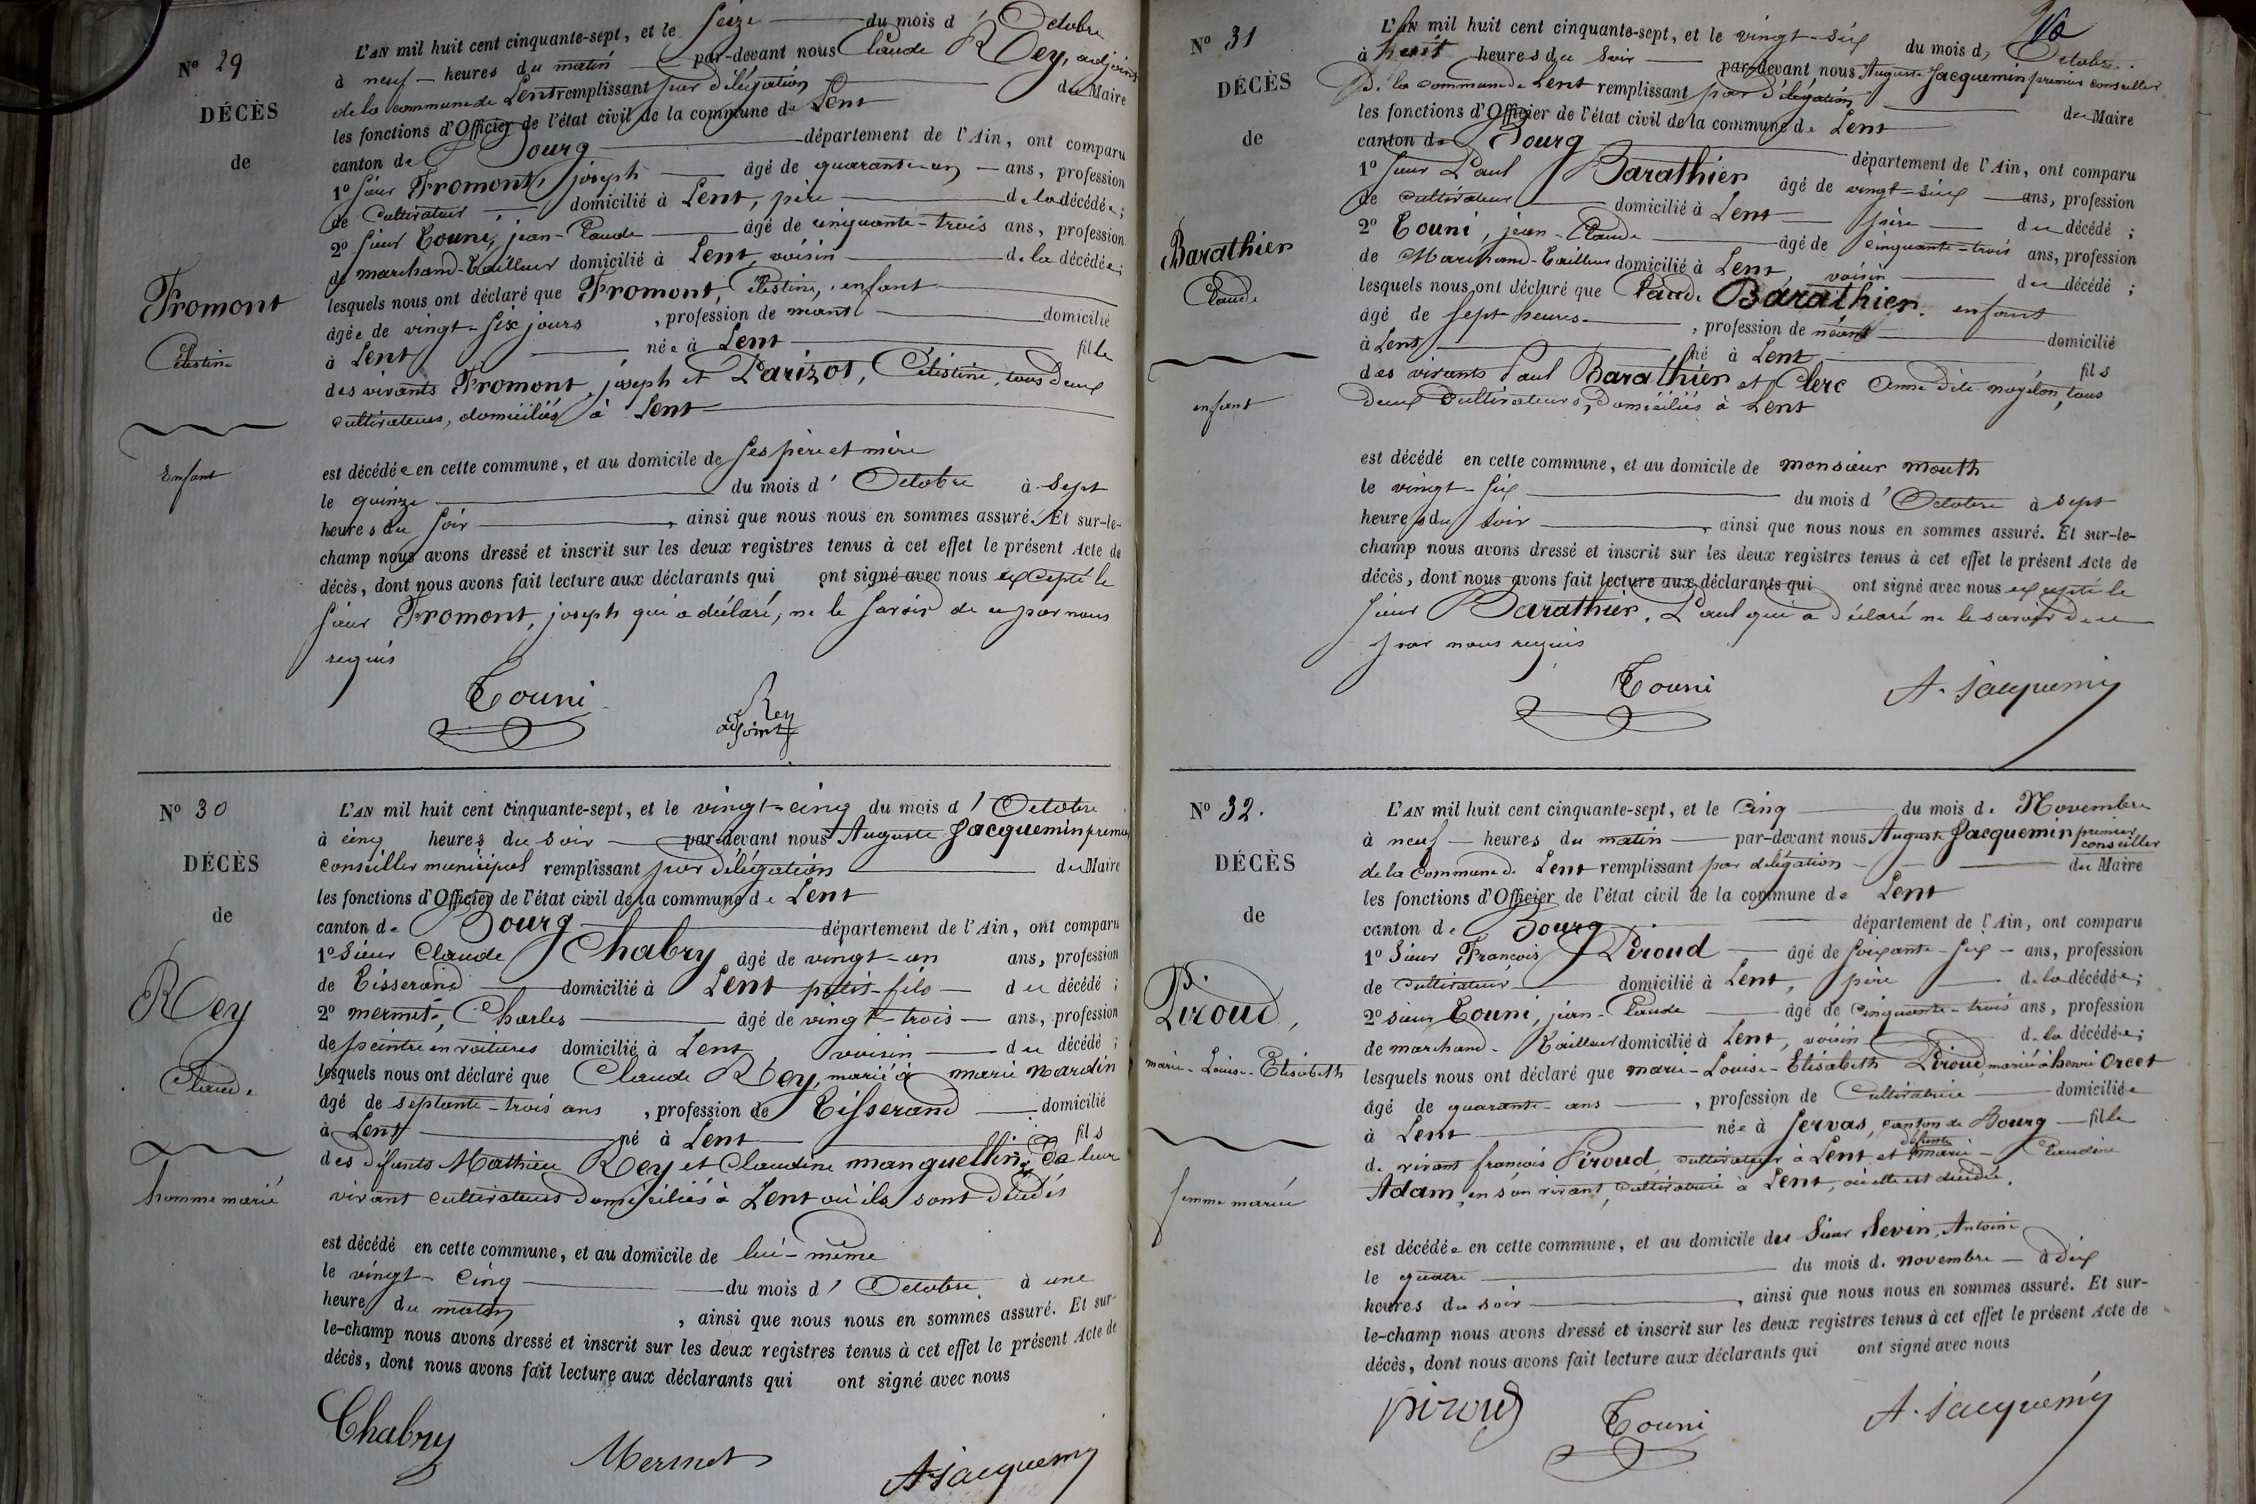 N° 29
DÉCÈS
de
Fromont
Célestine
Enfant
L'AN mil huit cent cinquante-sept, et le seize du mois d'Octobre
à neuf heures du matin par-devant nous Claude Rey, adjoint
de la commune de Lent remplissant par délégation du Maire
les fonctions d'Officier de l'état civil de la commune de Lent
canton de Bourg département de l'Ain, ont comparu
1° sieur Fromont, joseph âgé de quarante-un ans, profession
de Cultivateur domicilié à Lent, père de la décédée;
2° sieur Touni, jean-Claude âgé de cinquante-trois ans, profession
de marchand-tailleur domicilié à Lent, voisin de la décédée;
lesquels nous ont déclaré que Fromont, Célestine, enfant
âgée de vingt-six jours, profession de néant domicilié
à Lent née à Lent fille
des vivants Fromont, joseph et Parizot, Célestine, tous deux
cultivateurs, domiciliés à Lent
est décédée en cette commune, et au domicile de ses père et mère
le quinze du mois d'Octobre à sept
heures du soir, ainsi que nous nous en sommes assuré. Et sur-le-
champ nous avons dressé et inscrit sur les deux registres tenus à cet effet le présent Acte de
décès, dont nous avons fait lecture aux déclarants qui ont signé avec nous excepté le
sieur Fromont, joseph qui a déclaré, ne le savoir de ce par nous
requis
Touni
Rey
adjoint
N° 30
DÉCÈS
de
Rey
Claude
homme marié
L'AN mil huit cent cinquante-sept, et le vingt-cinq du mois d'Octobre
à cinq heures du soir par-devant nous Auguste Jacquemin premier
conseiller municipal remplissant par délégation du Maire
les fonctions d'Officier de l'état civil de la commune de Lent
canton de Bourg département de l'Ain, ont comparu
1° Sieur Claude Chabry âgé de vingt-un ans, profession
de Tisserand domicilié à Lent petit-fils du décédé;
2° mermet, Charles âgé de vingt-trois ans, profession
de peintre en voitures domicilié à Lent, voisin du décédé;
lesquels nous ont déclaré que Claude Rey, marié à marie Nardin
âgé de septante-trois ans, profession de Tisserand domicilié
à Lent né à Lent fils
des défunts Mathieu Rey et Claudine manguellin, De leur
vivant cultivateurs domiciliés à Lent où ils sont décédés
est décédé en cette commune, et au domicile de lui-même
le vingt-cinq du mois d'Octobre à une
heure du matin, ainsi que nous nous en sommes assuré. Et sur-
le-champ nous avons dressé et inscrit sur les deux registres tenus à cet effet le présent Acte de
décès, dont nous avons fait lecture aux déclarants qui ont signé avec nous
Chabry
Mermet
A. Jacquemin
N° 31
DÉCÈS
de
Barathier
Claude
enfant
L'AN mil huit cent cinquante-sept, et le vingt-six du mois d'Octobre
à huit heures du soir par-devant nous Auguste Jacquemin premier conseiller
De la commune de Lent remplissant par délégation du Maire
les fonctions d'Officier de l'état civil de la commune de Lent
canton de Bourg département de l'Ain, ont comparu
1° sieur Paul Barathier âgé de vingt-six ans, profession
de cultivateur domicilié à Lent père du décédé;
2° Touni, jean-Claude âgé de cinquante-trois ans, profession
de Marchand-tailleur domicilié à Lent, voisin du décédé;
lesquels nous ont déclaré que Claude Barathier, enfant
âgé de sept heures, profession de néant domicilié
à Lent né à Lent fils
des vivants Paul Barathier et Clerc Anne dite noyélon, tous
Deux Cultivateurs, Domiciliés à Lent
est décédé en cette commune, et au domicile de monsieur mouth
le vingt-six du mois d'Octobre à sept
heures du soir, ainsi que nous nous en sommes assuré. Et sur-le-
champ nous avons dressé et inscrit sur les deux registres tenus à cet effet le présent Acte de
décès, dont nous avons fait lecture aux déclarants qui ont signé avec nous excepté le
sieur Barathier, Paul qui a déclaré ne le savoir De ce
par nous requis
Touni
A. Jacquemin
N° 32.
DÉCÈS
de
Piroud,
marie-Louise-Elisabeth
femme mariée
L'AN mil huit cent cinquante-sept, et le Cinq du mois de Novembre
à neuf heures du matin par-devant nous Auguste Jacquemin premier conseiller
de la Commune de Lent remplissant par délégation du Maire
les fonctions d'Officier de l'état civil de la commune de Lent
canton de Bourg département de l'Ain, ont comparu
1° Sieur François Piroud âgé de soixante-six ans, profession
de cultivateur domicilié à Lent, père de la décédée;
2° sieur Touni, jean-Claude âgé de Cinquante-trois ans, profession
de marchand-Tailleur domicilié à Lent, voisin de la décédée;
lesquels nous ont déclaré que marie-Louise-Elisabeth Piroud, mariée à henri Orcet
âgé de quarante-ans, profession de Cultivatrice domiciliée
à Lent née à Servas, canton de Bourg fille
de vivant françois Piroud, cultivateur à Lent et défunte marie-Claudine
Adam, en son vivant, cultivatrice à Lent, où elle est décédée.
est décédée en cette commune, et au domicile du Sieur Sevin, Antoine
le quatre du mois de novembre à dix
heures du soir, ainsi que nous nous en sommes assuré. Et sur-
le-champ nous avons dressé et inscrit sur les deux registres tenus à cet effet le présent Acte de
décès, dont nous avons fait lecture aux déclarants qui ont signé avec nous
piroud
Touni
A. Jacquemin